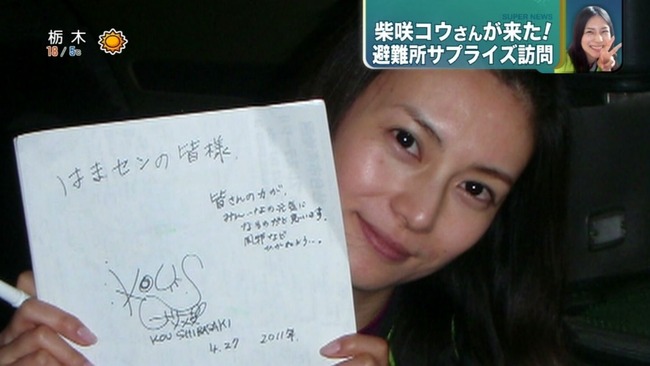 栃木
18/5℃
SUPER NEWS
柴咲コウさんが来た!
避難所サプライズ訪問
はまセンの皆様
皆さんの力が、
みんなの元気に
なるのだと思います。
風邪など
ひかぬよう…。
KOU SHIBASAKI
4.27 2011年.